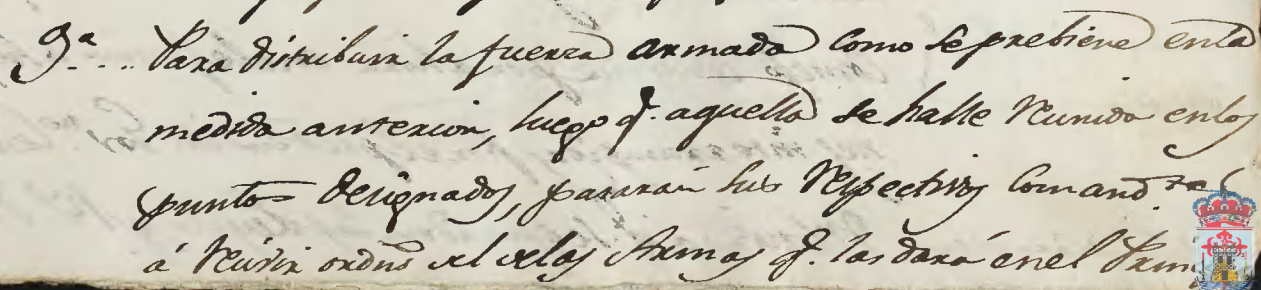 9ª... Para distribuir la fuerza armada como se prebiene en la
medida anterior, luego q.e aquella se halle reunida en los
puntos designados, pasarán sus respectivos Comand.tes
á recivir ordns del de las Armas q.e las dará en el